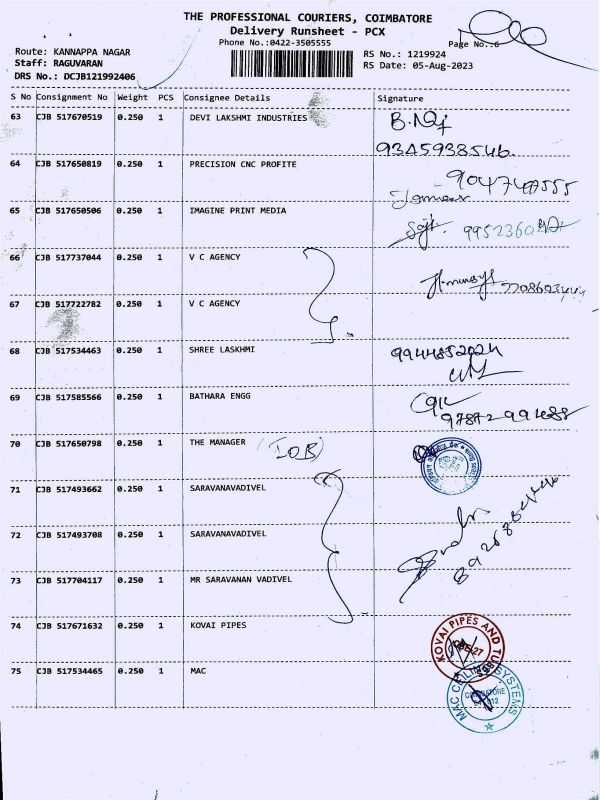 THE PROFESSIONAL COURIERS, COIMBATORE
Delivery Runsheet - PCX
Phone No.:0422-3505555
Page No.:6
Route: KANNAPPA NAGAR
RS No.: 1219924
Staff: RAGUVARAN
RS Date: 05-Aug-2023
DRS No.: DCJB121992406
S No Consignment No Weight PCS Consignee Details Signature
63 CJB 517670519 0.250 1 DEVI LAKSHMI INDUSTRIES
9345938546.
64 CJB 517650819 0.250 1 PRECISION CNC PROFITE
65 CJB 517650506 0.250 1 IMAGINE PRINT MEDIA
66 CJB 517737044 0.250 1 V C AGENCY
67 CJB 517722782 0.250 1 V C AGENCY
68 CJB 517534463 0.250 1 SHREE LASKHMI
9944852024
69 CJB 517585566 0.250 1 BATHARA ENGG
70 CJB 517650798 0.250 1 THE MANAGER (IOB)
71 CJB 517493662 0.250 1 SARAVANAVADIVEL
72 CJB 517493708 0.250 1 SARAVANAVADIVEL
73 CJB 517704117 0.250 1 MR SARAVANAN VADIVEL
74 CJB 517671632 0.250 1 KOVAI PIPES
KOVAI PIPES AND
75 CJB 517534465 0.250 1 MAC
MAC CEILING SYSTEMS